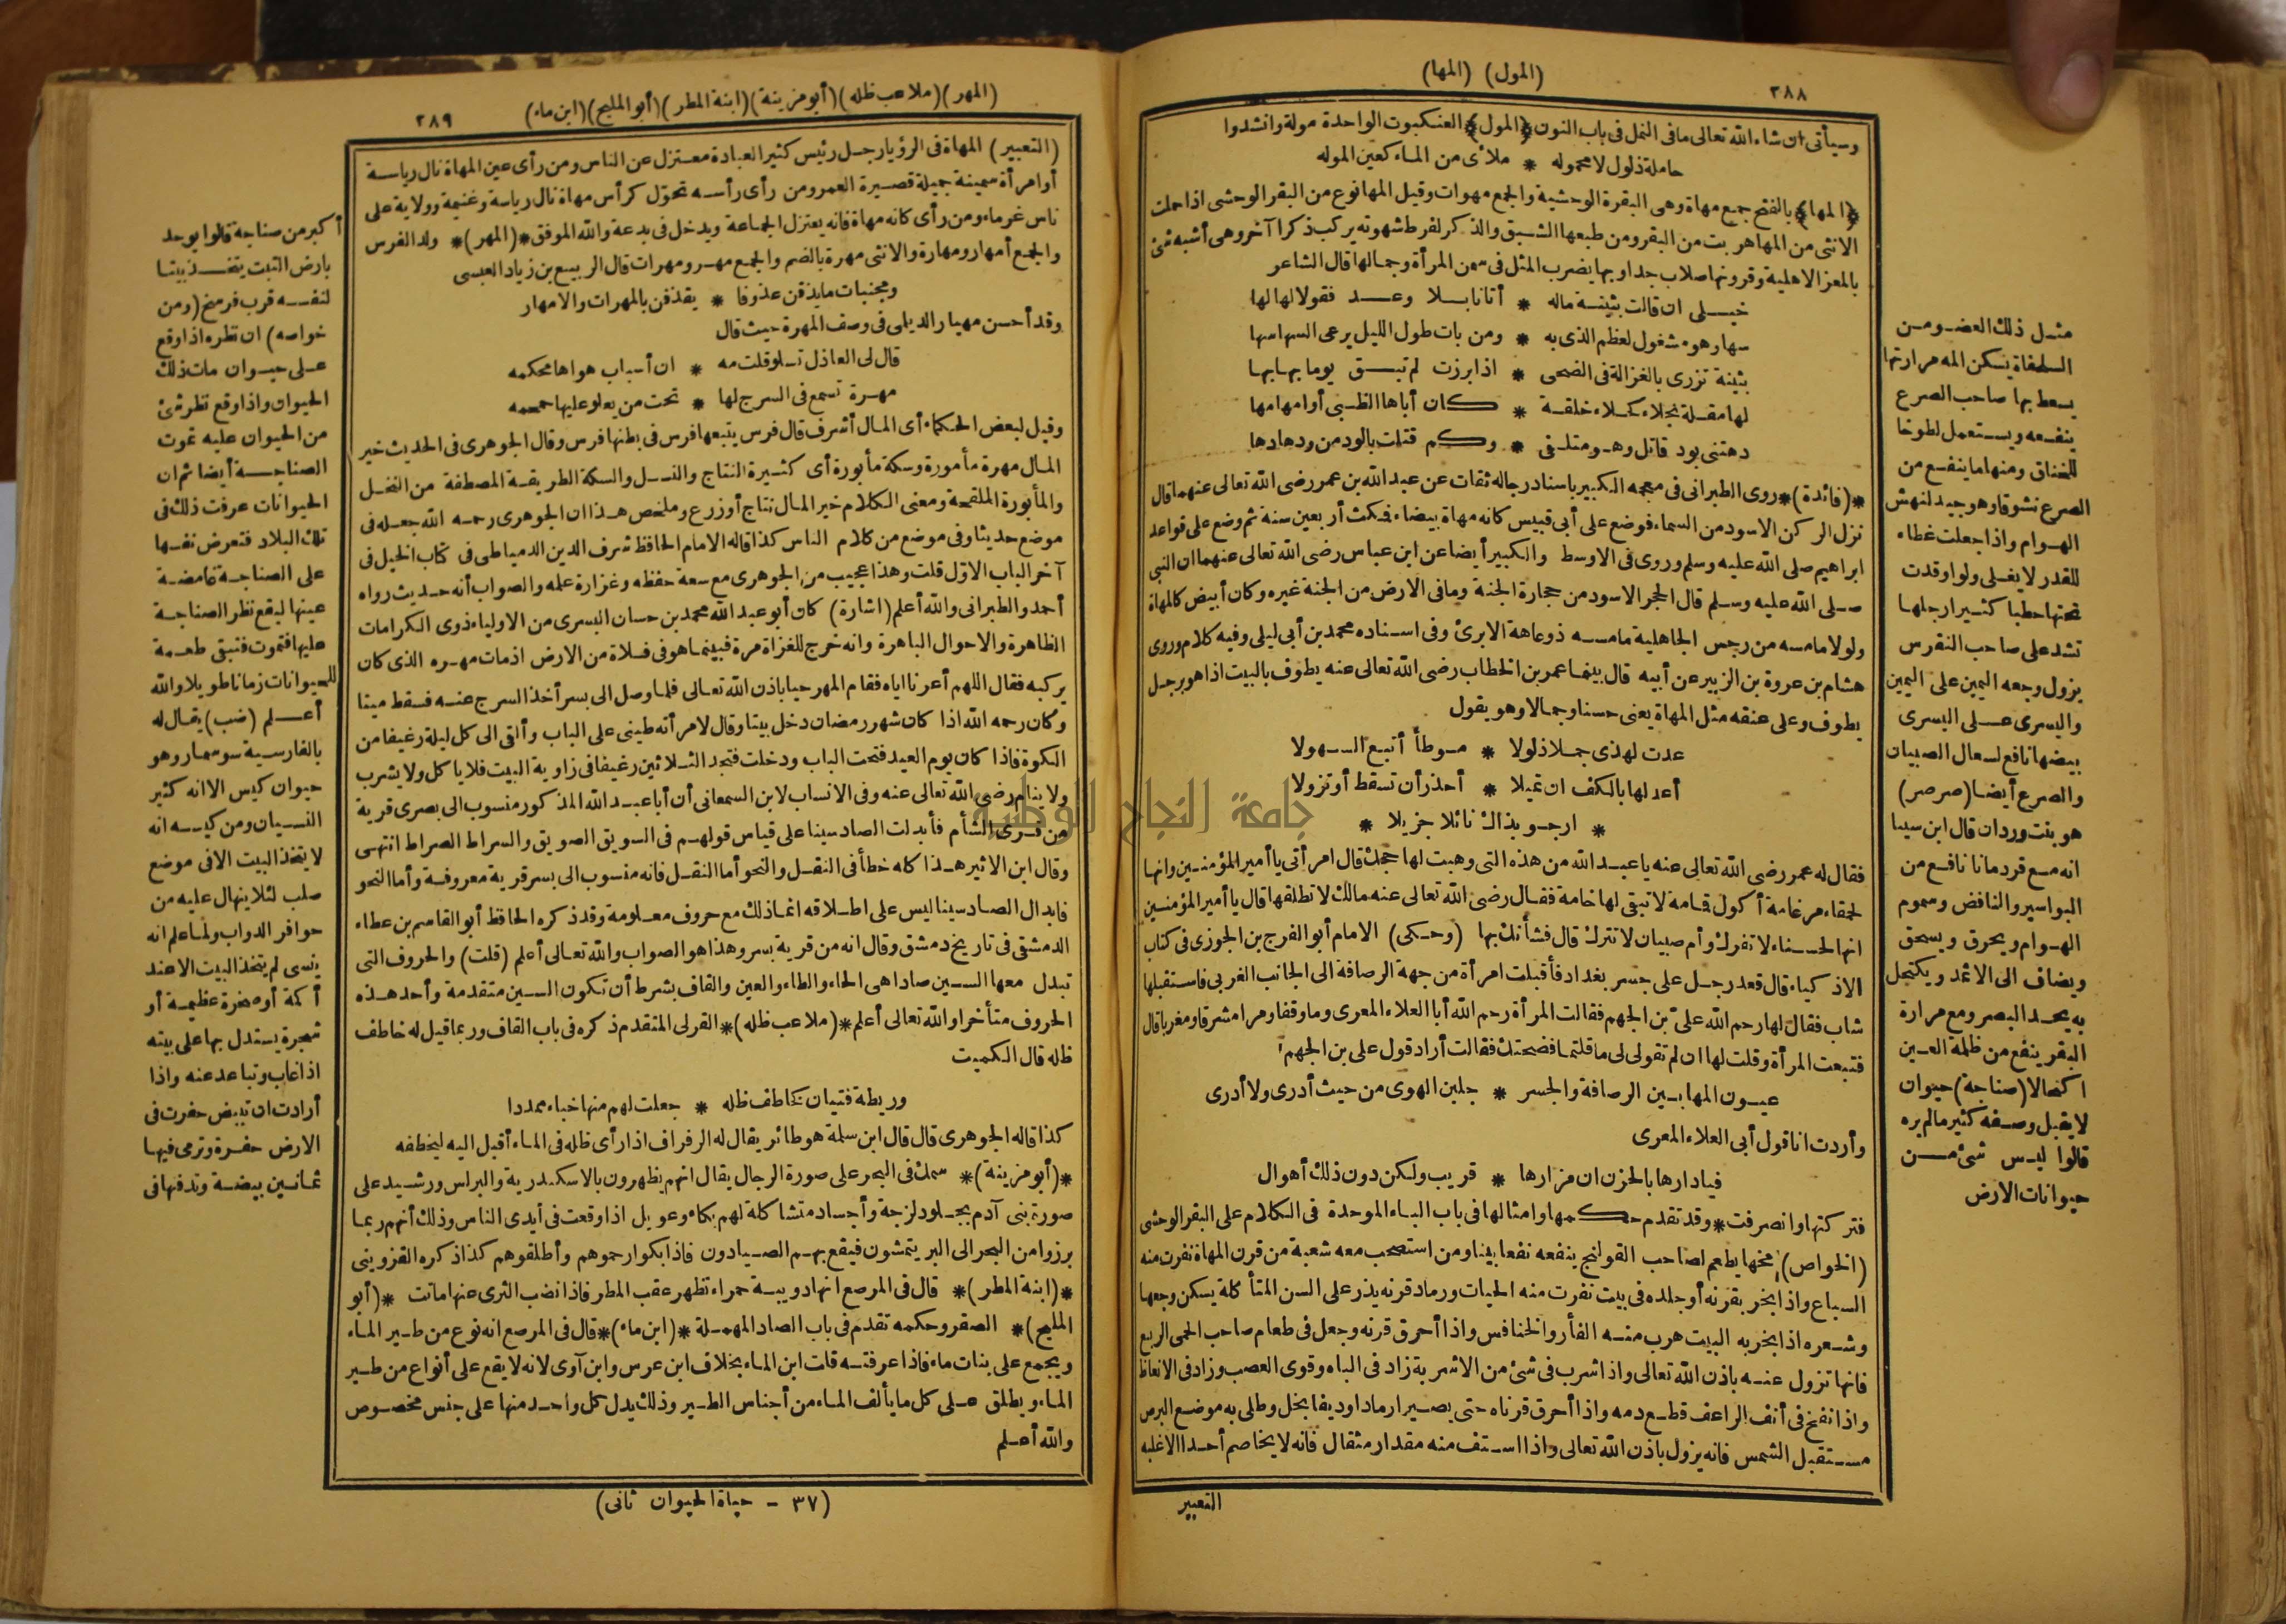 ٢٨٨
(المول) (المها)
وسيأتى ان شاء الله تعالى ما فى النمل فى باب النون ﴿المول﴾ العنكبوت الواحدة مولة وانشدوا
حاملة ذلول لا محموله * ملأى من الماء كعين الموله
﴿المها﴾ بالفتح جمع مهاة وهى البقرة الوحشية والجمع مهوات وقيل المها نوع من البقر الوحشى اذا حملت
الانثى من المها هربت من البقر ومن طبعها الشبق والذكر لفرط شهوته يركب ذكرا آخر وهى أشبه شئ
بالمعز الاهلية وقرونها صلاب جدا وبها يضرب المثل فى سمن المرأة وجمالها قال الشاعر
خيلى ان قالت بثينة ماله * أتانا بلا وعد فقولا لها لها
سها وهو مشغول لعظم الذى به * ومن بات طول الليل يرعى السها سها
بثينة تزرى بالغزالة فى الضحى * اذا برزت لم تبق يوما بها بها
لها مقلة نجلاء كحلاء خلقة * كان أباها الظبى أو امها مها
دهتنى بود قاتل وهو متلفى * وكم قتلت بالود من ودها دها
*(فائدة)* روى الطبرانى فى معجمه الكبير باسناد رجاله ثقات عن عبد الله بن عمر رضى الله تعالى عنهما قال
نزل الركن الاسود من السماء فوضع على أبى قبيس كانه مهاة بيضاء فمكث أربعين سنة ثم وضع على قواعد
ابراهيم صلى الله عليه وسلم وروى فى الاوسط والكبير أيضا عن ابن عباس رضى الله تعالى عنهما ان النبى
صلى الله عليه وسلم قال الحجر الاسود من حجارة الجنة وما فى الارض من الجنة غيره وكان أبيض كالمهاة
ولولا ما مسه من رجس الجاهلية ما مسه ذو عاهة الا برئ وفى اسناده محمد بن أبى ليلى وفيه كلام وروى
هشام بن عروة بن الزبير عن أبيه قال بينما عمر بن الخطاب رضى الله تعالى عنه يطوف بالبيت اذا هو برجل
يطوف وعلى عنقه مثل المهاة يعنى حسنا وجمالا وهو يقول
عدت لهذى جملا ذلولا * موطأ أتبع السهولا
أعدلها بالكف ان تميلا * أحذر أن تسقط أو تزولا
* ارجو بذاك نائلا جزيلا *
فقال له عمر رضى الله تعالى عنه يا عبد الله من هذه التى وهبت لها حجك قال امرأتى يا أمير المؤمنين وانها
لحمقاء مرغامة أكول قامة لا تبقى لها خامة فقال رضى الله تعالى عنه مالك لا تطلقها قال يا أمير المؤمنين
انها لحسناء لا تفرك وأم صبيان لا تترك قال فشأنك بها (وحكى) الامام أبو الفرج بن الجوزى فى كتاب
الاذكياء قال قعد رجل على جسر بغداد فأقبلت امرأة من جهة الرصافة الى الجانب الغربى فاستقبلها
شاب فقال لها رحم الله علىّ بن الجهم فقالت المرأة رحم الله أبا العلاء المعرى وما وقفا ومرا مشرقا ومغربا قال
فتبعت المرأة وقلت لها ان لم تقولى لى ما قلتما فضحتك فقالت أراد قول على بن الجهم
عيون المها بين الرصافة والجسر * جلبن الهوى من حيث أدرى ولا أدرى
وأردت انا قول أبى العلاء المعرى
فيا دارها بالحزن ان مزارها * قريب ولكن دون ذلك أهوال
فتركتها وانصرفت * وقد تقدم حكمها وامثالها فى باب الباء الموحدة فى الكلام على البقر الوحشى
(الخواص) مخها يطعم لصاحب القولنج ينفعه نفعا بينا ومن استصحب معه شعبة من قرن المهاة نفرت منه
السباع واذا بخر بقرنه أو جلده فى بيت نفرت منه الحيات ورماد قرنه يذر على السن المتأكلة يسكن وجعها
وشعره اذا بخر به البيت هرب منه الفأر والخنافس واذا أحرق قرنه وجعل فى طعام صاحب الحمى الربع
فانها تزول عنه باذن الله تعالى واذا شرب فى شئ من الاشربة زاد فى الباه وقوى العصب وزاد فى الانعاظ
واذا نفخ فى أنف الراعف قطع دمه واذا أحرق قرناه حتى يصيرا رمادا وديفا بخل وطلى به موضع البرص
مستقبل الشمس فانه يزول باذن الله تعالى واذا استف منه مقدار مثقال فانه لا يخاصم أحدا الا غلبه
التعبير
مثل ذلك العضو ومن
السلحفاة يسكن المه مرارتها
يسعط بها صاحب الصرع
ينفعه ويستعمل لطوخا
للخناق ومنها ما ينفع من
الصرع نشوقا وهو جيد لنهش
الهوام واذا جعلت غطاء
للقدر لا يغلى ولو اوقدت
تحتها حطبا كثيرا رجلها
تشد على صاحب النقرس
يزول وجعه اليمين على اليمين
واليسرى على اليسرى
بيضها نافع لسعال الصبيان
والصرع أيضا (صرصر)
هو بنت وردان قال ابن سينا
انه مع قردمانا نافع من
البواسير والنافض وسموم
الهوام ويحرق ويسحق
ويضاف الى الاثمد ويكتحل
به يحد البصر ومع مرارة
البقر ينفع من ظلمة العين
اكتحالا (صناجة) حيوان
لا يقبل وصفه كثير ما لم يره
قالوا ليس شئ من
حيوانات الارض
(المهر) (ملاعب ظله) (أبو مزينة) (ابنة المطر) (أبو المليح) (ابن ماء)
٢٨٩
(التعبير) المهاة فى الرؤيا رجل رئيس كثير العبادة معتزل عن الناس ومن رأى عين المهاة نال رياسة
أو امرأة سمينة جميلة قصيرة العمر ومن رأى رأسه تحوّل كرأس مهاة نال رياسة وغنيمة وولاية على
ناس غرماء ومن رأى كانه مهاة فانه يعتزل الجماعة ويدخل فى بدعة والله الموفق *(المهر)* ولد الفرس
والجمع أمهار ومهارة والانثى مهرة بالضم والجمع مهر ومهرات قال الربيع بن زياد العبسى
ومجنبات ما يذقن عذوفا * يقذفن بالمهرات والامهار
وقد أحسن مهيار الديلمى فى وصف المهرة حيث قال
قال لى العاذل تسلو قلت مه * ان أسباب هواها محكمه
مهرة تسمع فى السرج لها * تحت من يعلو عليها حمحمه
وقيل لبعض الحكماء أى المال أشرف قال فرس يتبعها فرس فى بطنها فرس وقال الجوهرى فى الحديث خير
المال مهرة مأمورة وسكة مأبورة أى كثيرة النتاج والنسل والسكة الطريقة المصطفة من النخل
والمأبورة الملقحة ومعنى الكلام خير المال نتاج أو زرع وملخص هذا ان الجوهرى رحمه الله جعله فى
موضع حديثا وفى موضع من كلام الناس كذا قاله الامام الحافظ شرف الدين الدمياطى فى كتاب الخيل فى
آخر الباب الاوّل قلت وهذا عجيب من الجوهرى مع سعة حفظه وغزارة علمه والصواب أنه حديث رواه
أحمد والطبرانى والله أعلم (اشارة) كان أبو عبد الله محمد بن حسان البسرى من الاولياء ذوى الكرامات
الظاهرة والاحوال الباهرة وانه خرج للغزاة مرة فبينما هو فى فلاة من الارض اذ مات مهره الذى كان
يركبه فقال اللهم أعرنا اياه فقام المهر حيا باذن الله تعالى فلما وصل الى بسر أخذ السرج عنه فسقط ميتا
وكان رحمه الله اذا كان شهر رمضان دخل بيتا وقال لامرأته طينى على الباب وألقى الى كل ليلة رغيفا من
الكوة فاذا كان يوم العيد فتحت الباب ودخلت فتجد الثلاثين رغيفا فى زاوية البيت فلا يأكل ولا يشرب
ولا ينام رضى الله تعالى عنه وفى الانساب لابن السمعانى أن أبا عبد الله المذكور منسوب الى بصرى قرية
من قرى الشأم فأبدلت الصاد سينا على قياس قولهم فى السويق الصويق والسراط الصراط انتهى
وقال ابن الاثير هذا كله خطأ فى النقل والنحو أما النقل فانه منسوب الى بسر قرية معروفة وأما النحو
فابدال الصاد سينا ليس على اطلاقه انما ذلك مع حروف معلومة وقد ذكره الحافظ أبو القاسم بن عطاء
الدمشقى فى تاريخ دمشق وقال انه من قرية بسر وهذا هو الصواب والله تعالى أعلم (قلت) والحروف التى
تبدل معها السين صادا هى الحاء والطاء والعين والقاف بشرط أن تكون السين متقدمة وأحد هذه
الحروف متأخرا والله تعالى أعلم *(ملاعب ظله)* القرلى المتقدم ذكره فى باب القاف وربما قيل له خاطف
ظله قال الكميت
وريطة فتيان كخاطف ظله * جعلت لهم منها خباء ممددا
كذا قاله الجوهرى قال قال ابن سلمة هو طائر يقال له الرفراف اذا رأى ظله فى الماء أقبل اليه ليخطفه
*(أبو مزينة)* سمك فى البحر على صورة الرجال يقال انهم يظهرون بالاسكندرية والبرلس ورشيد على
صورة بنى آدم بجلود لزجة وأجساد متشاكلة لهم بكاء وعويل اذا وقعت فى أيدى الناس وذلك أنهم ربما
برزوا من البحر الى البر يتمشون فيقع بهم الصيادون فاذا بكوا رحموهم وأطلقوهم كذا ذكره القزوينى
*(ابنة المطر)* قال فى المرصع انها دويبة حمراء تظهر عقب المطر فاذا نضب الثرى عنها ماتت *(أبو
المليح)* الصقر وحكمه تقدم فى باب الصاد المهملة *(ابن ماء)* قال فى المرصع انه نوع من طير الماء
ويجمع على بنات ماء فاذا عرفته قلت ابن الماء بخلاف ابن عرس وابن آوى لانه لا يقع على أنواع من طير
الماء ويطلق على كل ما يألف الماء من أجناس الطير وذلك يدل كل واحد منها على جنس مخصوص
والله أعلم
(٣٧ - حياة الحيوان ثانى)
أكبر من صناجة قالوا يوجد
بارض التبت يتخذ بيتا
لنفسه قرب فرسخ (ومن
خواصه) ان نظره اذا وقع
على حيوان مات ذلك
الحيوان واذا وقع نظر شئ
من الحيوان عليه تموت
الصناجة أيضا ثم ان
الحيوانات عرفت ذلك فى
تلك البلاد فتعرض نفسها
على الصناجة غامضة
عينها ليقع نظر الصناجة
عليها فتموت فتبقى طعمة
للحيوانات زمانا طويلا والله
أعلم (ضب) يقال له
بالفارسية سوسمار وهو
حيوان كيس الا انه كثير
النسيان ومن كيسه انه
لا يتخذ البيت الا فى موضع
صلب لئلا ينهال عليه من
حوافر الدواب ولما علم انه
ينسى لم يتخذ البيت الا عند
أكمة أو صخرة عظيمة أو
شجرة يستدل بها على بيته
اذا غاب وتباعد عنه واذا
أرادت ان تبيض حفرت فى
الارض حفرة وترمى فيها
ثمانين بيضة وتدفنها فى
جامعة النجاح الوطنية